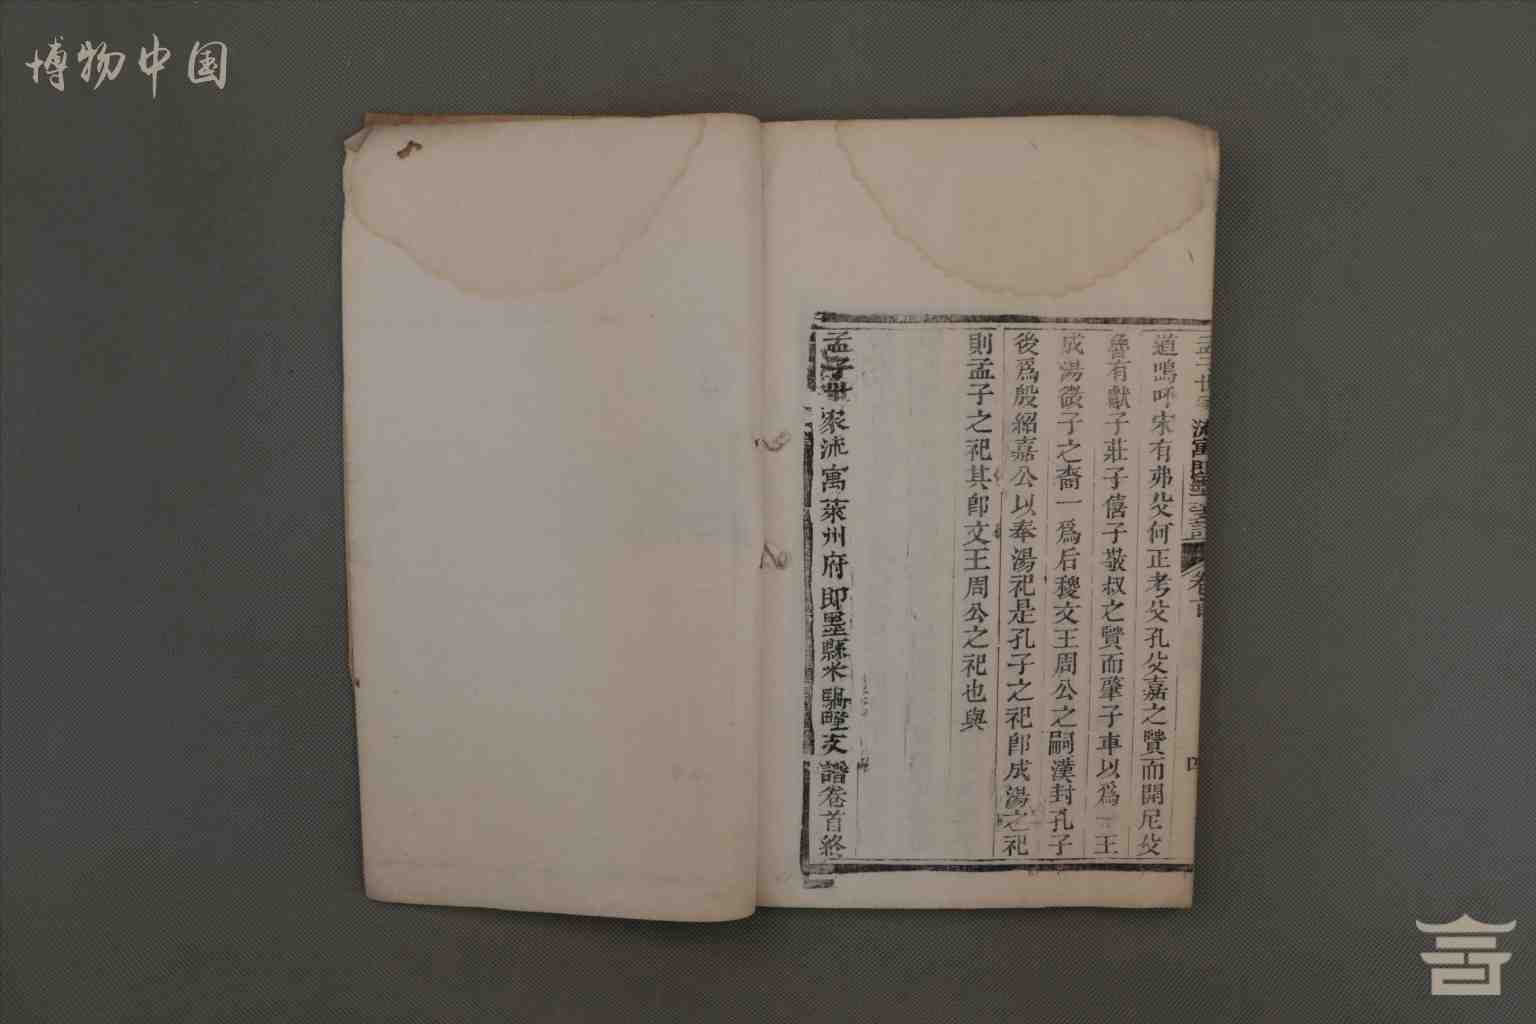 博物中国
道嗚呼宋有弗父何正考父孔父嘉之賢而開尼父
魯有獻子莊子僖子敬叔之賢而肇子車以爲一王
成湯微子之裔一爲后稷文王周公之嗣漢封孔子
後爲殷紹嘉公以奉湯祀是孔子之祀即成湯之祀
則孟子之祀其即文王周公之祀也與
孟子世家流寓萊州府即墨縣米騧疃支譜卷首終